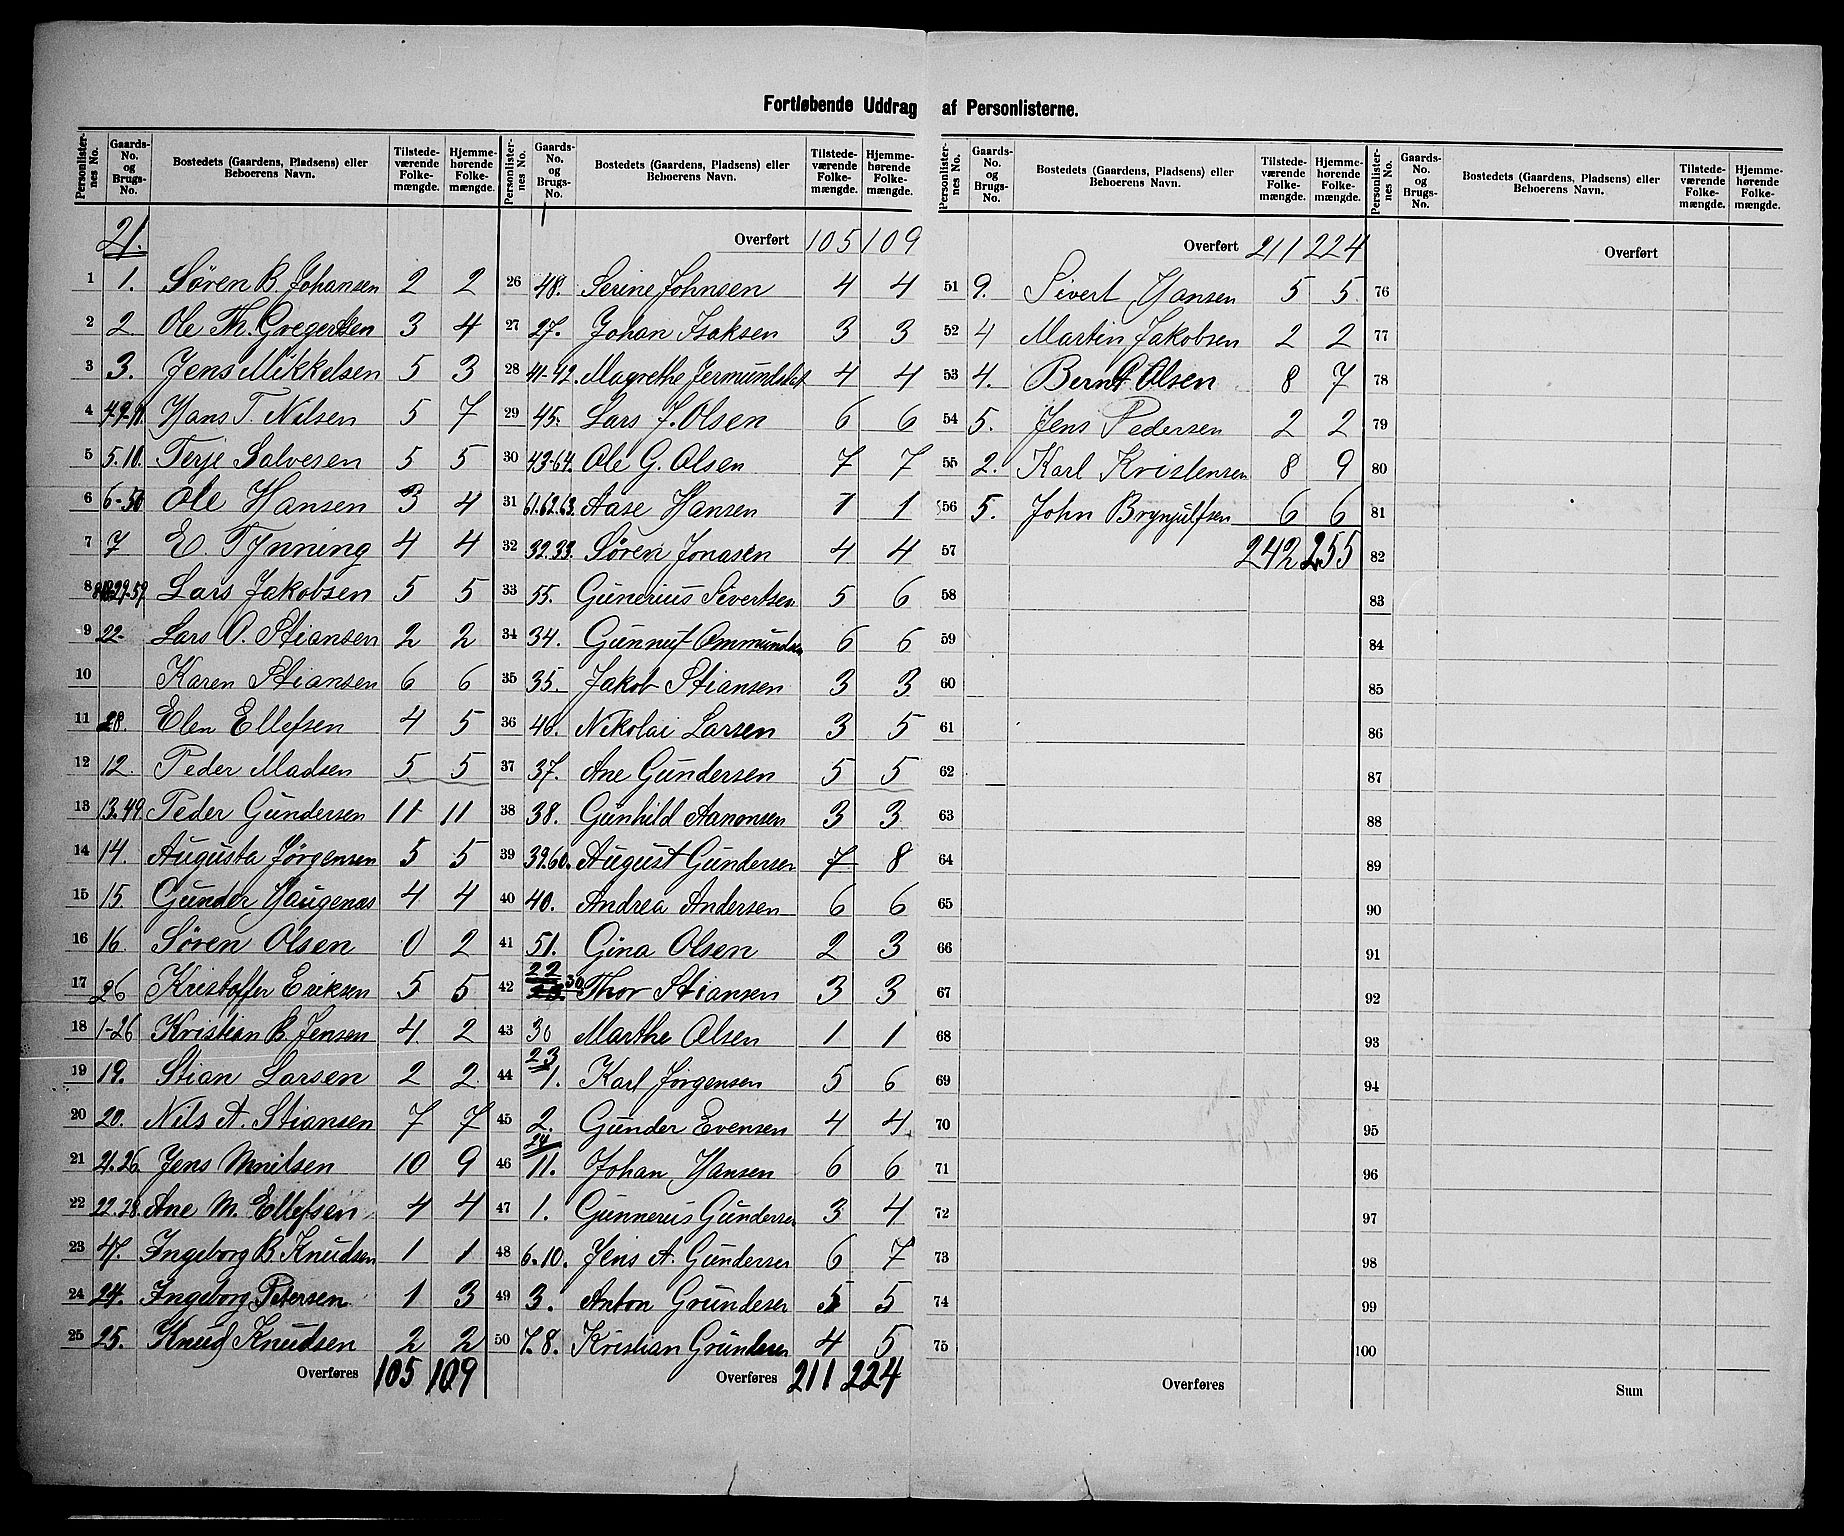 Fortløbende Uddrag af Personlisterne.
Personlisternes No. Gaards-No. og Brugs-No. Bostedets (Gaardens, Pladsens) eller Beboerens Navn. Tilstedeværende Folkemængde. Hjemmehørende Folkemængde.
21.
1 1. Søren B. Johansen 2 2
2 2 Ole Th. Gregersen 3 4
3 3. Jens Mikkelsen 5 3
4 Hans T. Nilsen 5 7
5 5.10. Terje Salvesen 5 5
6 6-50 Ole Hansen 3 4
7 7 E. Tynning 4 4
8 Lars Jakobsen 5 5
9 22- Lars O. Stiansen 2 2
10 Karen Stiansen 6 6
11 28. Elen Ellefsen 4 5
12 12. Peder Madsen 5 5
13 13.49. Peder Gundersen 11 11
14 14. Augusta Jørgensen 5 5
15 15. Gunder Haugenæs 4 4
16 16. Søren Olsen 0 2
17 26 Kristoffer Eriksen 5 5
18 1-26 Kristian B. Jensen 4 2
19 19. Stian Larsen 2 2
20 20. Nils A. Stiansen 7 7
21 21.26. Jens 10 9
22 22.28. Ane M. Ellefsen 4 4
23 47. Ingeborg B. Knudsen 1 1
24 24. Ingeborg Petersen 1 3
25 25. Knud Knudsen 2 2
Overføres 105 109
Personlisternes No. Gaards-No. og Brugs-No. Bostedets (Gaardens, Pladsens) eller Beboerens Navn. Tilstedeværende Folkemængde. Hjemmehørende Folkemængde.
Overført 105 109
26 48. Serine Johnsen 4 4
27 27. Johan Isaksen 3 3
28 41-42. Magrethe 4 4
29 45. Lars J. Olsen 6 6
30 43-64. Ole G. Olsen 7 7
31 61.62.63. Aase Hansen 1 1
32 32.33. Søren Jonasen 4 4
33 55. Gunerius Sivertsen 5 6
34 34. Gunnuf Ommundsen 6 6
35 35. Jakob Stiansen 3 3
36 46. Nikolai Larsen 3 5
37 37. Ane Gundersen 5 5
38 38. Gunhild Aanonsen 3 3
39 39.60. August Gundersen 7 8
40 40. Andrea Andersen 6 6
41 51. Gina Olsen 2 3
22
42 30 Thor Stiansen 3 3
43 30 Marthe Olsen 1 1
23
44 1. Karl Jørgensen 5 6
45 2. Gunder Evensen 4 4
24
46 11. Johan Hansen 6 6
47 1. Gunnerus Gunderse 3 4
48 6.10. Jens A. Gunderser 6 7
49 3. Anton Grundeser 5 5
50 7.8. Kristian Grundeser 4 5
Overføres 211 224
Personlisternes No. Gaards-No. og Brugs-No. Bostedets (Gaardens, Pladsens) eller Beboerens Navn. Tilstedeværende Folkemængde. Hjemmehørende Folkemængde.
Overført 211 224
51 9. Sivert Hansen 5 5
52 4 Martin Jakobsen 2 2
53 4. Bernt Olsen 8 7
54 5. Jens Pedersen 2 2
55 2. Karl Kristensen 8 9
56 5. John Brynjulfsen 6 6
57 242 255
58
59
60
61
62
63
64
65
66
67
68
69
70
71
72
73
74
75
Overføres
Personlisternes No. Gaards-No. og Brugs-No. Bostedets (Gaardens, Pladsens) eller Beboerens Navn. Tilstedeværende Folkemængde. Hjemmehørende Folkemængde.
Overført
76
77
78
79
80
81
82
83
84
85
86
87
88
89
90
91
92
93
94
95
96
97
98
99
100
Sum